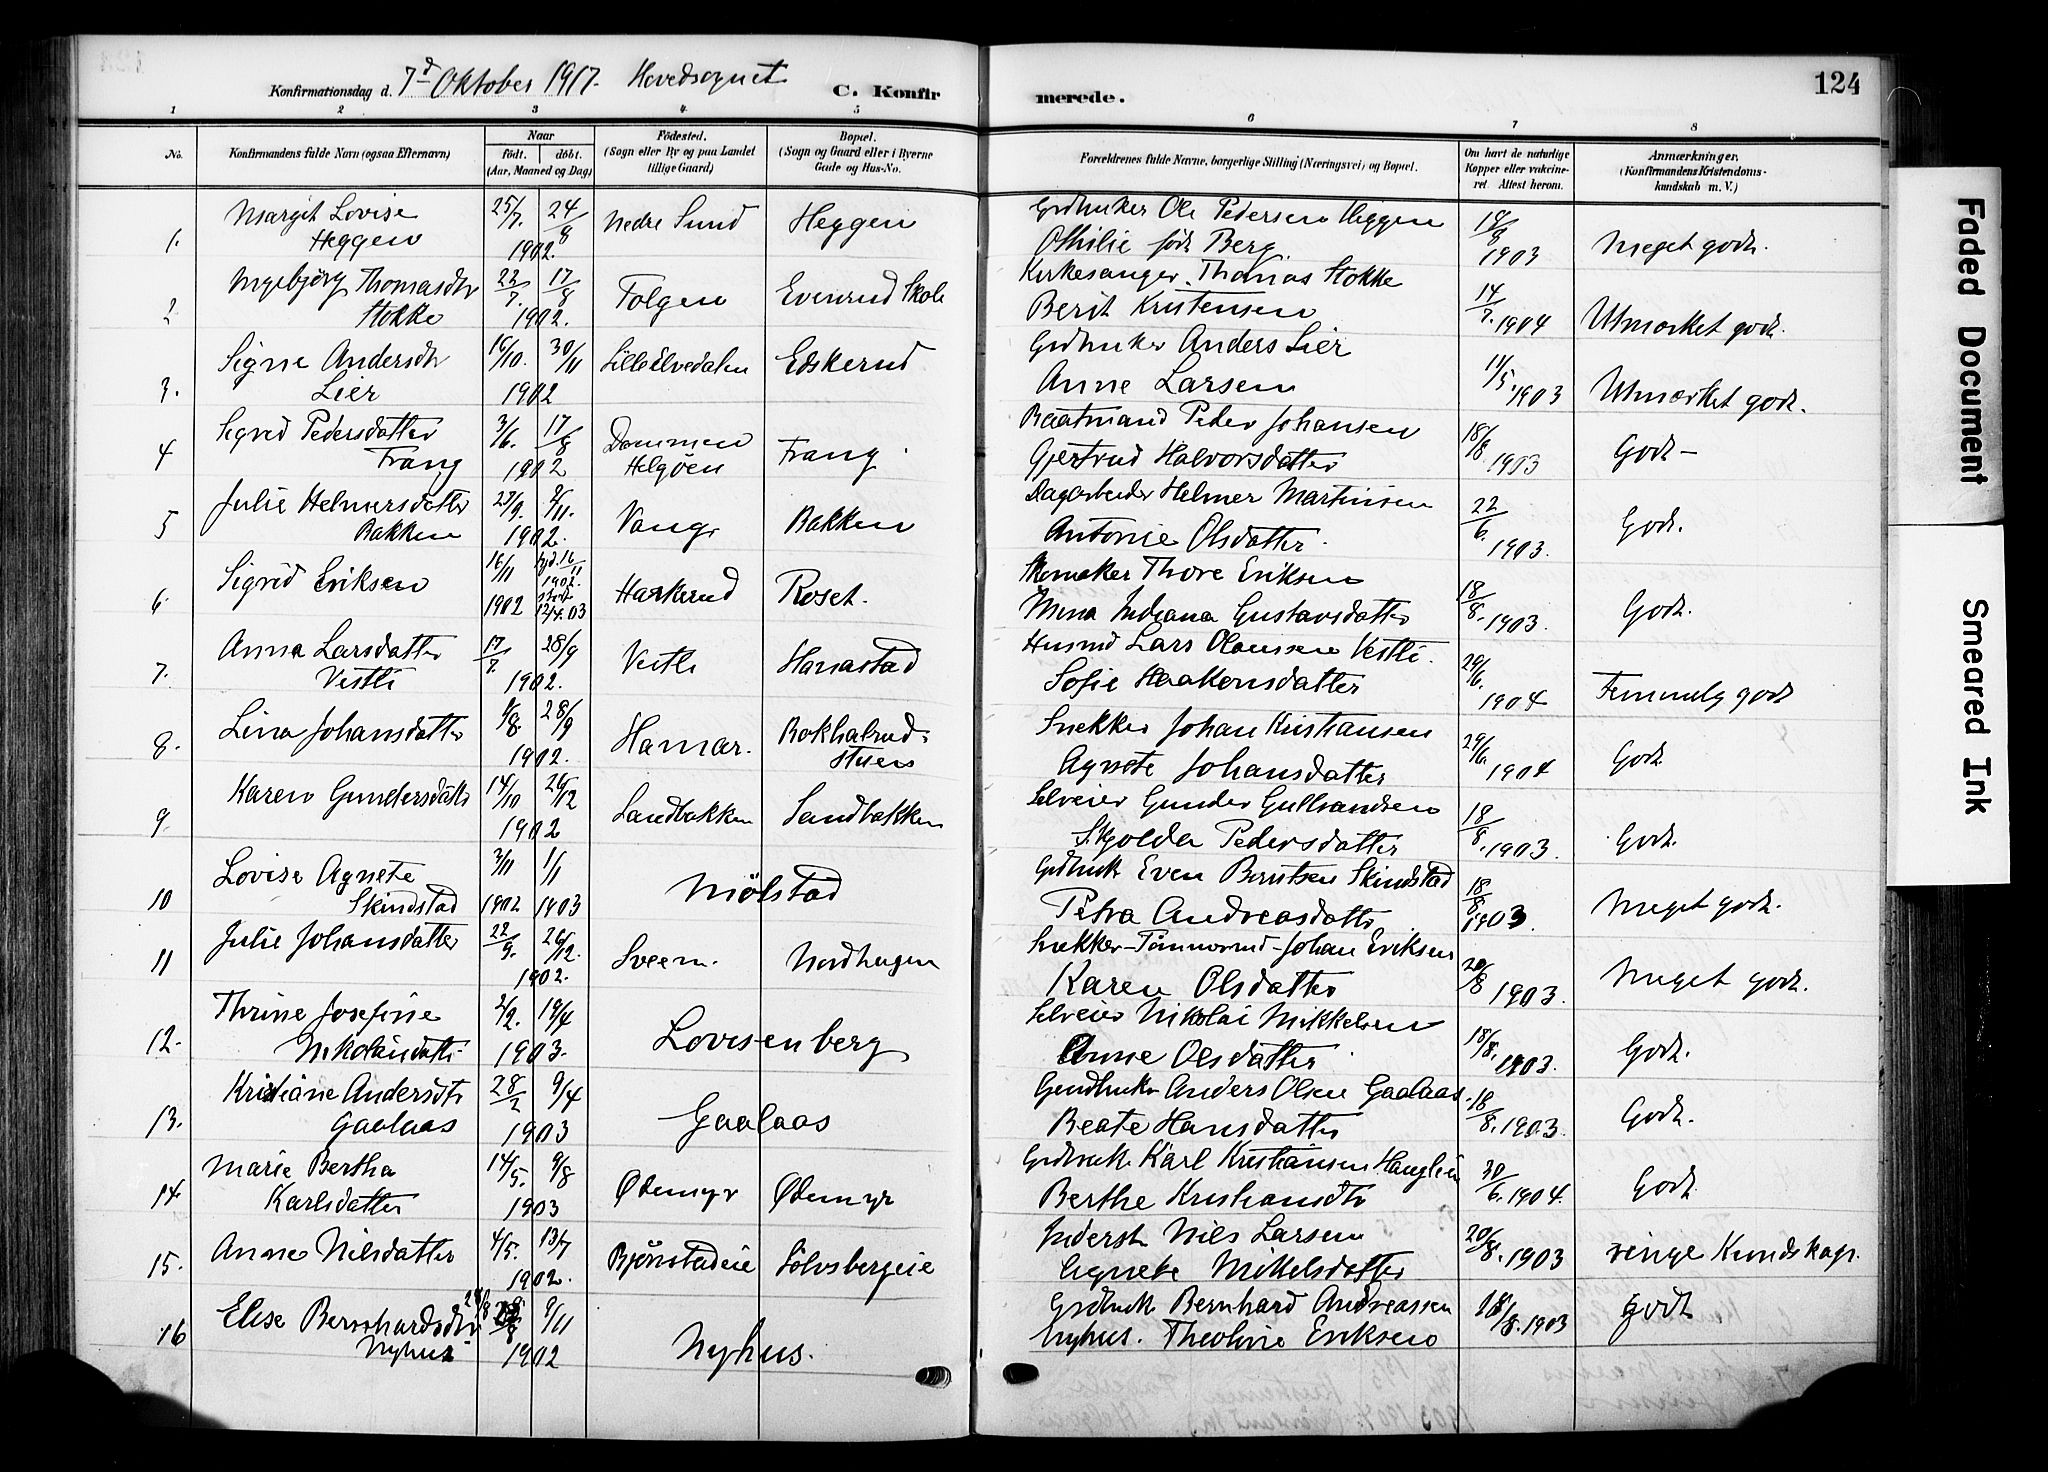 Konfirmationsdag d. 7d Oktober 1917. Hovedsognet C. Konfir merede. 124
1 2 3 4 5 6 7 8
No. Konfirmandens fulde Navn (ogsaa Efternavn) Naar født. døbt. (Aar, Maaned og Dag) Fødested. (Sogn eller By og paa Landet tillige Gaard) Bopæl. (Sogn og Gaard eller i Byerne Gade og Hus-No. Forældrenes fulde Navne, borgerlige Stilling (Næringsvei) og Bopæl. Om havt de naturlige Kopper eller vakcineret. Attest herom. Anmærkninger. (Konfirmandens Kristendomskundskab m. V.)
Margit Lovise 25/7. 24/8 Nedre Sund Heggen Grdbruker Ole Pedersen Heggen 18/8
1. Heggen 1902. Othilie født Berg 1903 Meget godt.
Ingebjørg Thomasdtr 22/7. 17/8 Tolgen Evenrud Skole Kirkesanger Thomas Stokke 14/7. 1904
2 Stokke 1902. Berit Kristensen Utmærket godt.
Signe Andersdtr 16/10. 30/11 Lilleelvedalen Edskerud Grdbruker Anders Lier 11/5. 1903
3. Lier 1902 Anne Larsen Utmærket godt.
Sigrid Pedersdatter 3/6. 17/8 Dammen Frang Baatmand Peder Johansen 18/8
4 Frang 1902 Helgøen Gjertrud Halvorsdatter 1903 Godt –
Julie Helmersdatter 27/9. 9/11. Vang Bakken Dagarbeider Helmer Martinsen 22/6.
5 Bakken 1902. Antonie Olsdatter. 1903. Godt.
Sigrid Eriksen 16/11 hjd. 16/11 1902. Harkerud Roset. Skomaker Thore Eriksen 18/8.
6. 1902 12/4. 03 Mina Indiana Gustavsdatter 1903. Godt.
Anna Larsdatter 17/7. 28/9 Vestli Hanastad Husmd Lars Olaussen Vestli. 29/6.
7. Vestli 1902. Sofie Haakensdatter 1904 Temmelig godt
Lina Johansdatter 4/8. 28/9 Hamar. Bokhalrud- Snekker Johan Kristiansen 29/6.
8. 1902. stuen Agnete Johansdatter 1904 Godt
Karen Gundersdatter 14/10 26/12 Sandbakken Sandbakken Selveier Gunder Gulbrandsen 18/8.
9. 1902 Skjolda Pedersdatter 1903. Godt.
Lovise Agnete 3/11 1/1 Mölstad Grdbruk Even Berntsen Skindstad 18/8
10 Skindstad 1902 1903 Petra Andreasdatter 1903. Meget godt.
Julie Johansdatter 22/9. 26/12. Sveen. Nordhagen Snekker-Tömmermd-Johan Eriksen 20/8
11 1902. Karen Olsdatter 1903. Meget godt.
Thrine Josefine 2/2. 19/4 Lovisenberg Selveier Nikolai Mikkelsen 18/8.
12. Nikolaisdatter 1903. Anne Olsdatter 1903. Godt.
Kristiane Andersdtr 28/2 9/4 Gaalaas Grdbruker Anders Olsen Gaalaas. 18/8. 1903.
13. Gaalaas 1903 Beate Hansdatter Godt.
Marie Bertha 14/5. 9/8 Ødemyr Ødemyr Grdbruk Karl Kristiansen Hauglien 30/6. 1904.
14. Karlsdatter 1903 Berthe Kristiansdtr Godt.
Anne Nilsdatter 4/5. 13/7 Bjønstadeie Sölvsbergeie Inderst Nils Larsen 20/8. 1903
15. 1902. Agnete Mikkelsdatter ringe Kundskap.
Elise Bernhardsdtr 28/8 9/11 Nyhus. Grdbruk Bernhard Andreassen 18/8. 1903 godt
16 Nyhus 1902 Nyhus. Theoline Eriksen
Faded Document
Smeared Ink